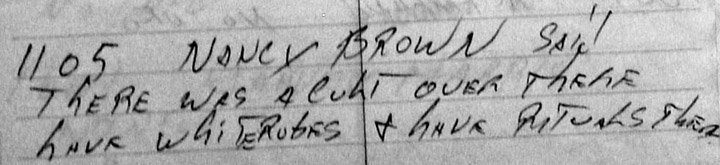 1105 NANCY BROWN SAID
THERE WAS A CULT OVER THERE
HAVE WHITE ROBES & HAVE RITUALS THERE